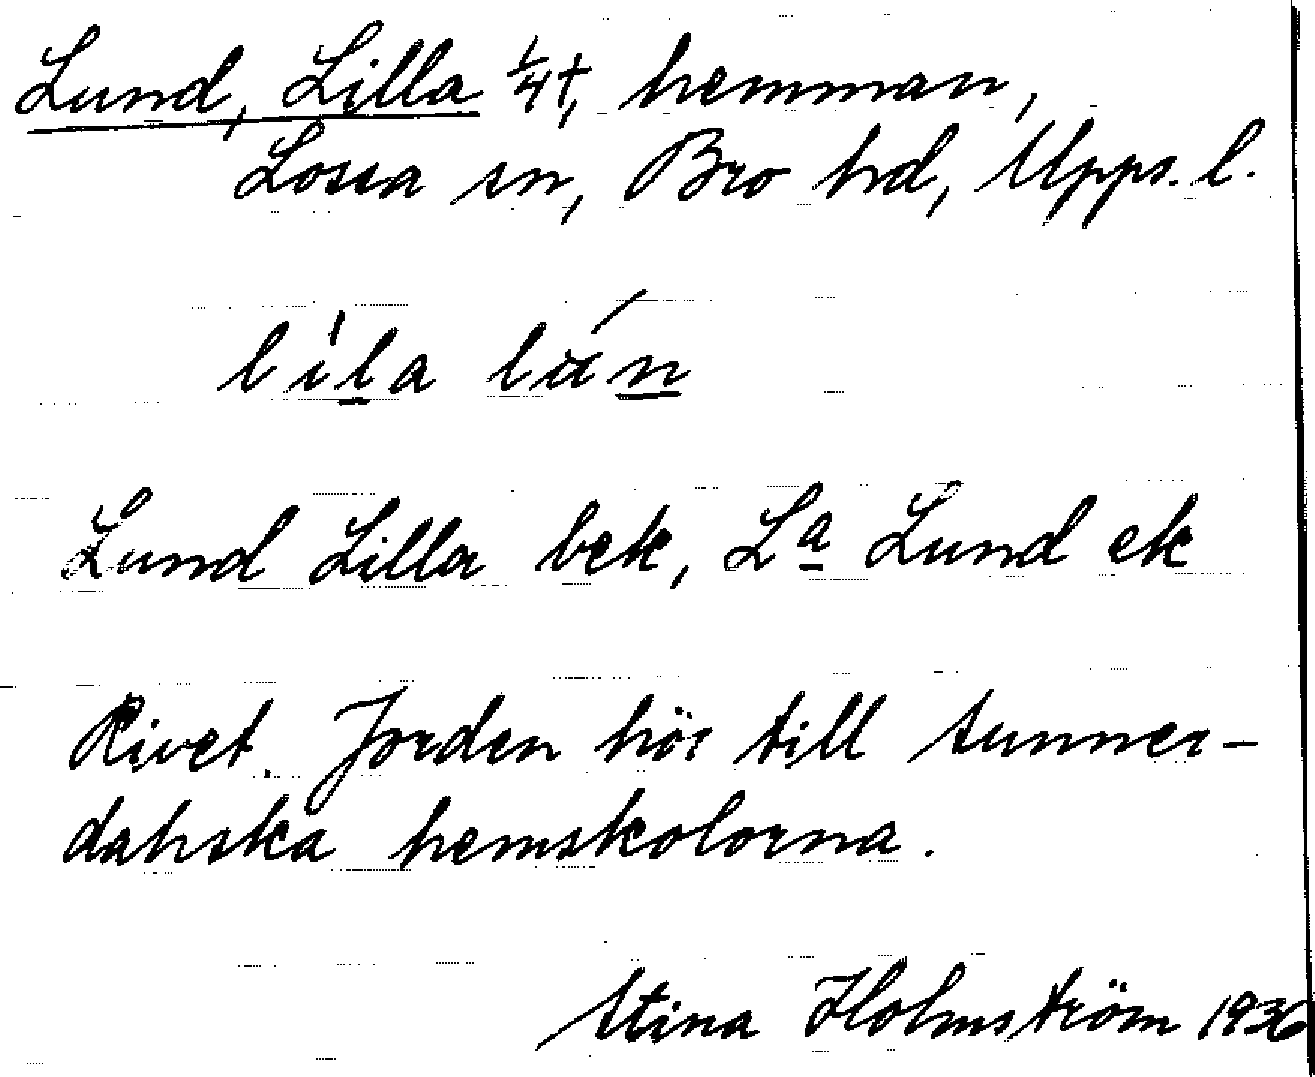 Lund, Lilla 1/4 t, hemman,
Lossa sn, Bro hd, Upps. l.
lìla lún
Lund Lilla bek, La Lund ek
Rivet. Jorden hör till tunner-
dahska hemskolorna.
Stina Holmström 1936